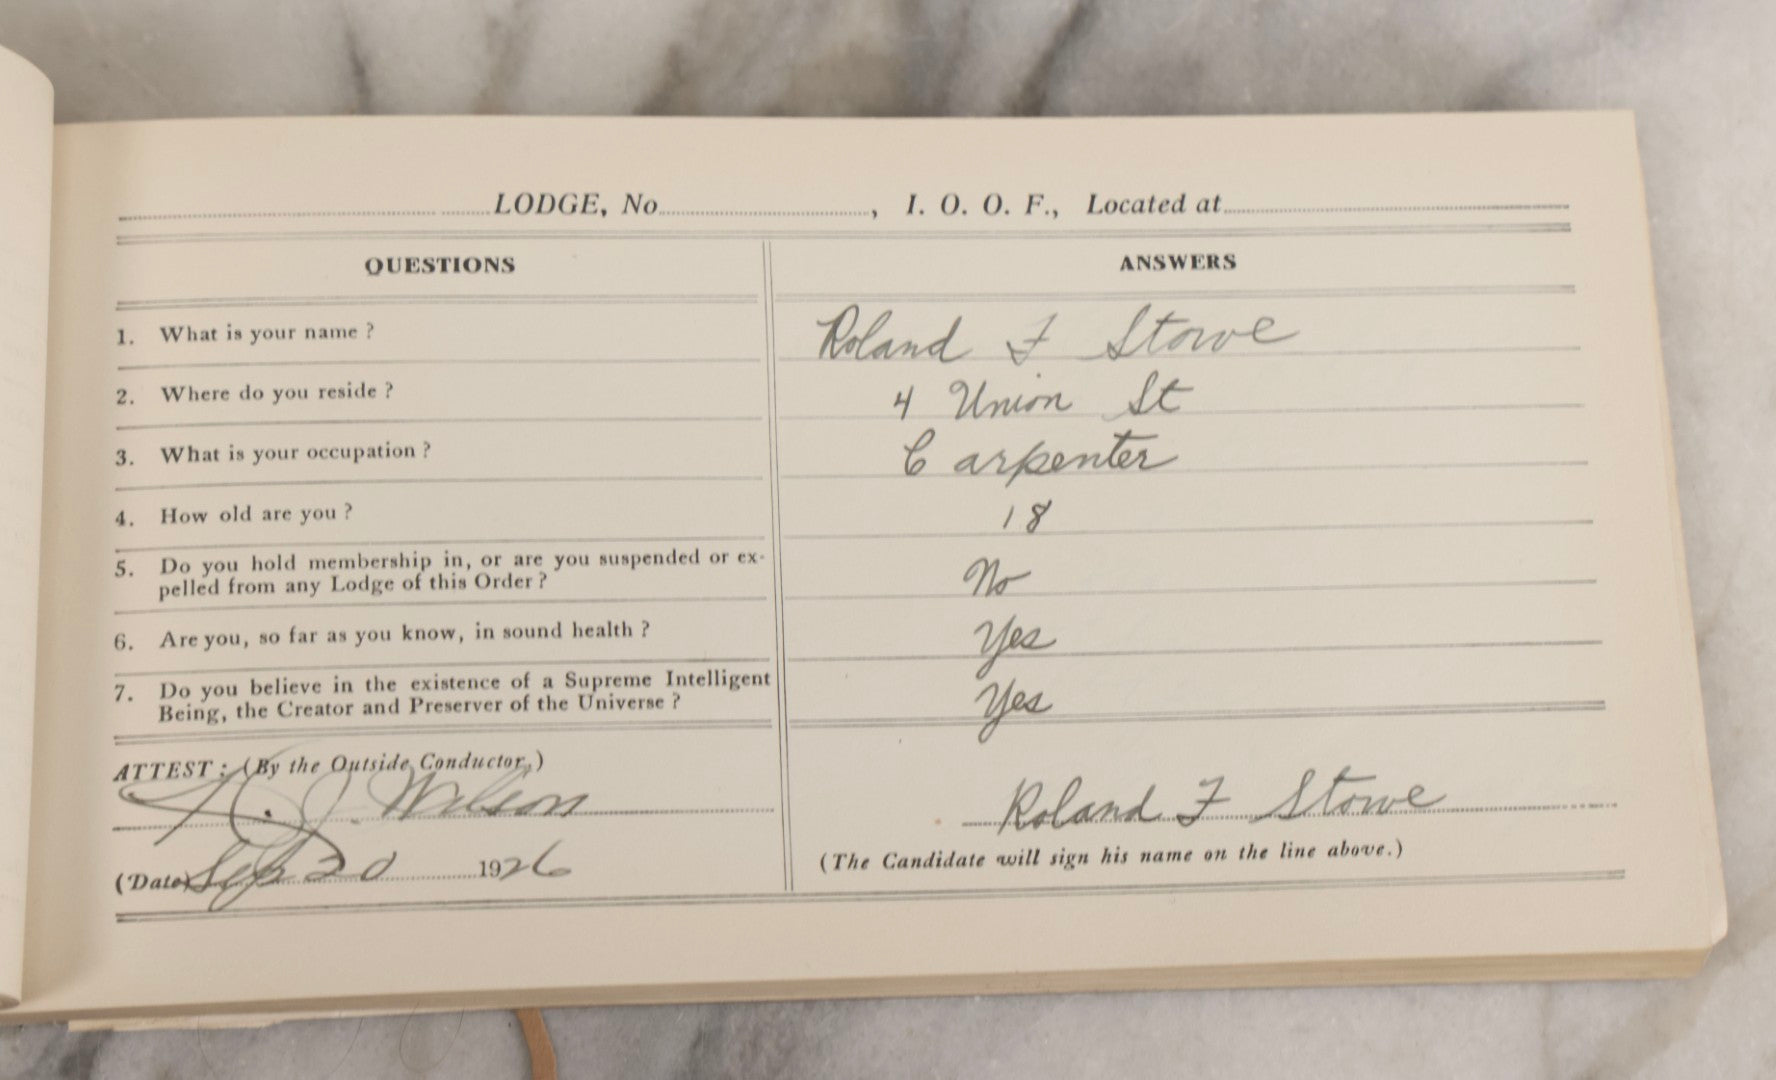 LODGE, No. , I. O. O. F., Located at
QUESTIONS
ANSWERS
1. What is your name ?
Roland F Stowe
2. Where do you reside ?
4 Union St
3. What is your occupation ?
Carpenter
4. How old are you ?
18
5. Do you hold membership in, or are you suspended or ex-
pelled from any Lodge of this Order ?
No
6. Are you, so far as you know, in sound health ?
Yes
7. Do you believe in the existence of a Supreme Intelligent
Being, the Creator and Preserver of the Universe ?
Yes
ATTEST : (By the Outside Conductor.)
J. Wilson
(Date) Sep 20 1926
Roland F Stowe
(The Candidate will sign his name on the line above.)